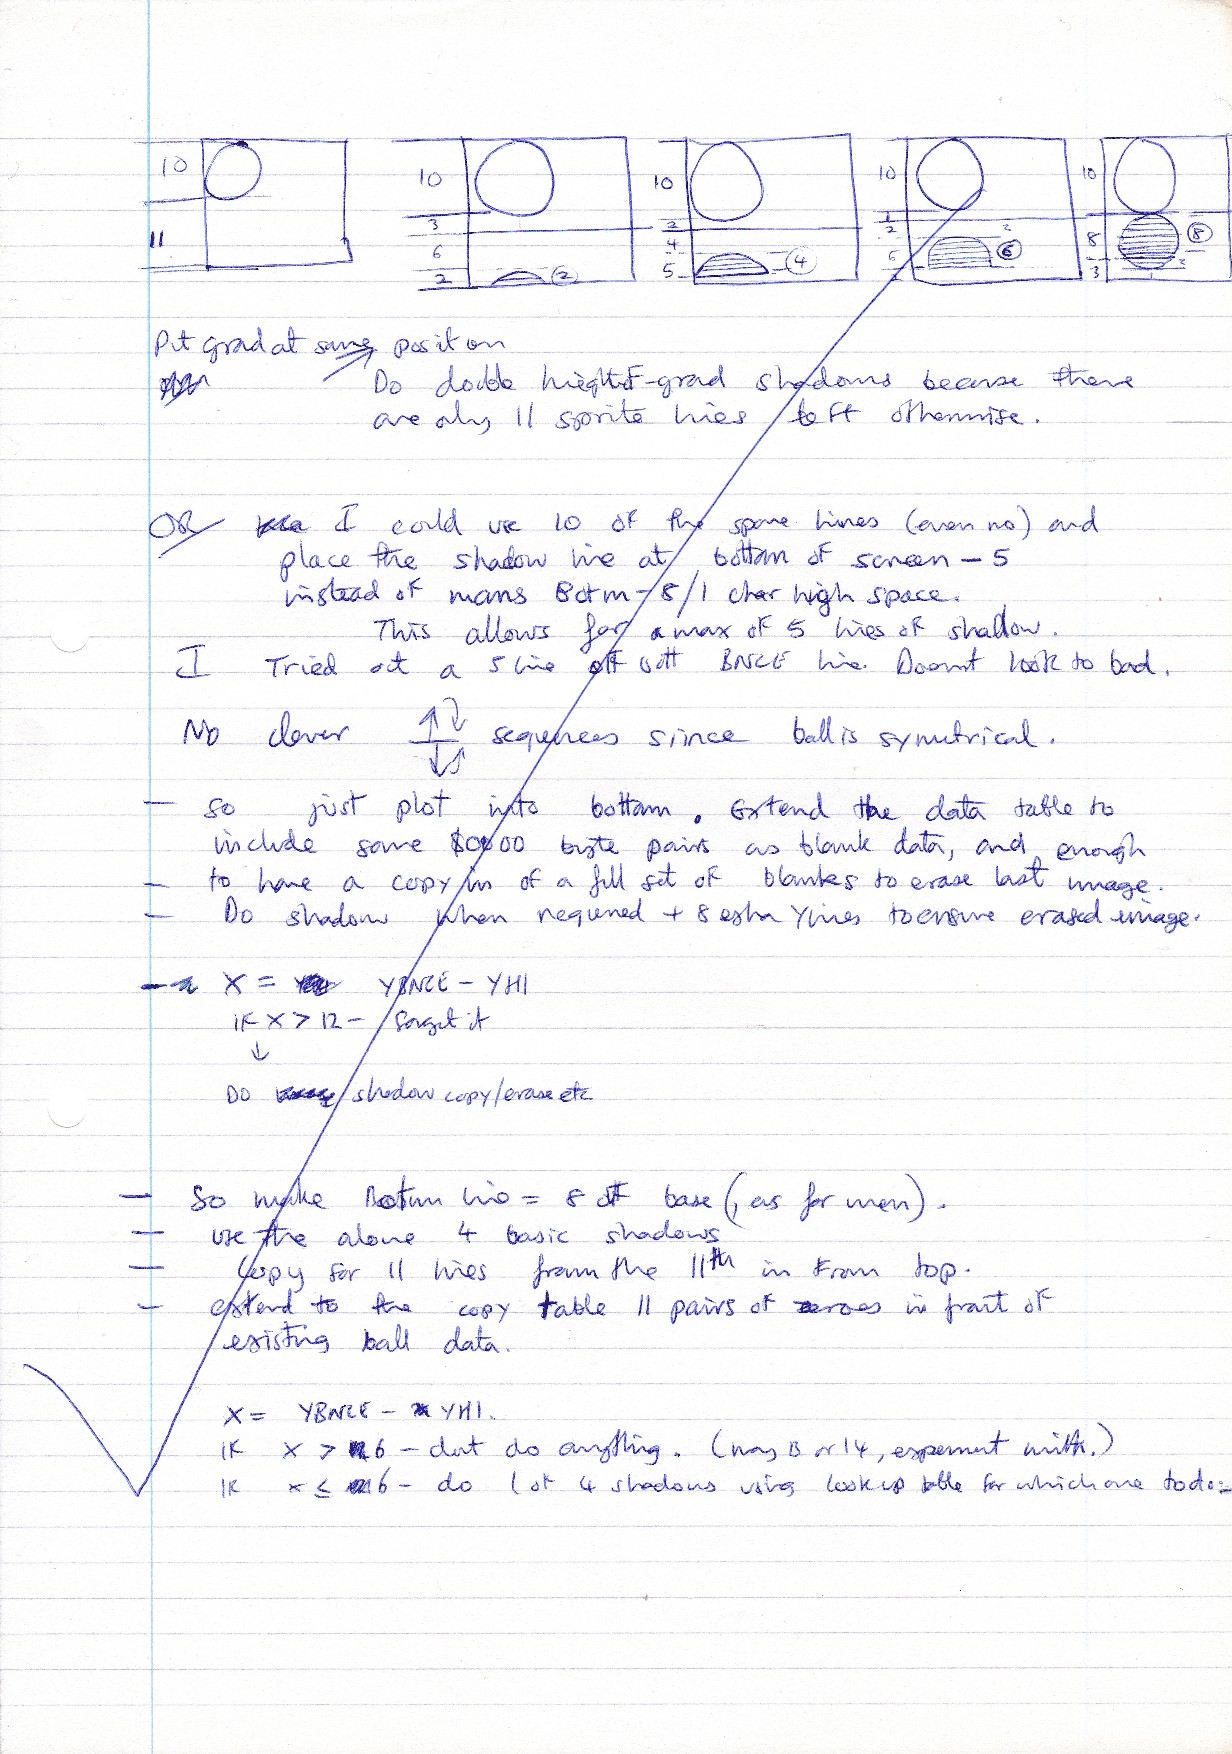 10 11
10 3 6 2 2
10 2 4 5 4
10 1 2 5 2 6
10 8 3 8
Put grad at same position
Do double height F-grad shadows because there
are only 11 sprite lines left otherwise.
OR I could use 10 of the spare lines (even no) and
place the shadow line at bottom of screen - 5
instead of mans Bottm - 8/1 char high space.
This allows for a max of 5 lines of shadow.
I Tried out a 5 line off bott BNCE line. Doesnt look to bad.
No clever sequences since ball is symetrical.
- so just plot into bottom. Extend the data table to
include some $0000 byte pairs as blank data, and enough
- to have a copy in of a full set of blanks to erase last image.
- Do shadow when required + 8 extra Ylines to ensure erased image.
X = YBNCE - YHI
IF X > 12 - forget it
↓
DO shadow copy/erase etc
- So make Bottom line = 8 off base (, as for men).
- use the above 4 basic shadows
- Copy for 11 lines from the 11th in from top.
- extend to the copy table 11 pairs of zeroes in front of
existing ball data.
X = YBNCE - YHI.
IF X > 6 - dont do anything. (may B or 14, experiment with.)
IF x ≤ 6 - do 1 of 4 shadows using lookup table for which one to do:-